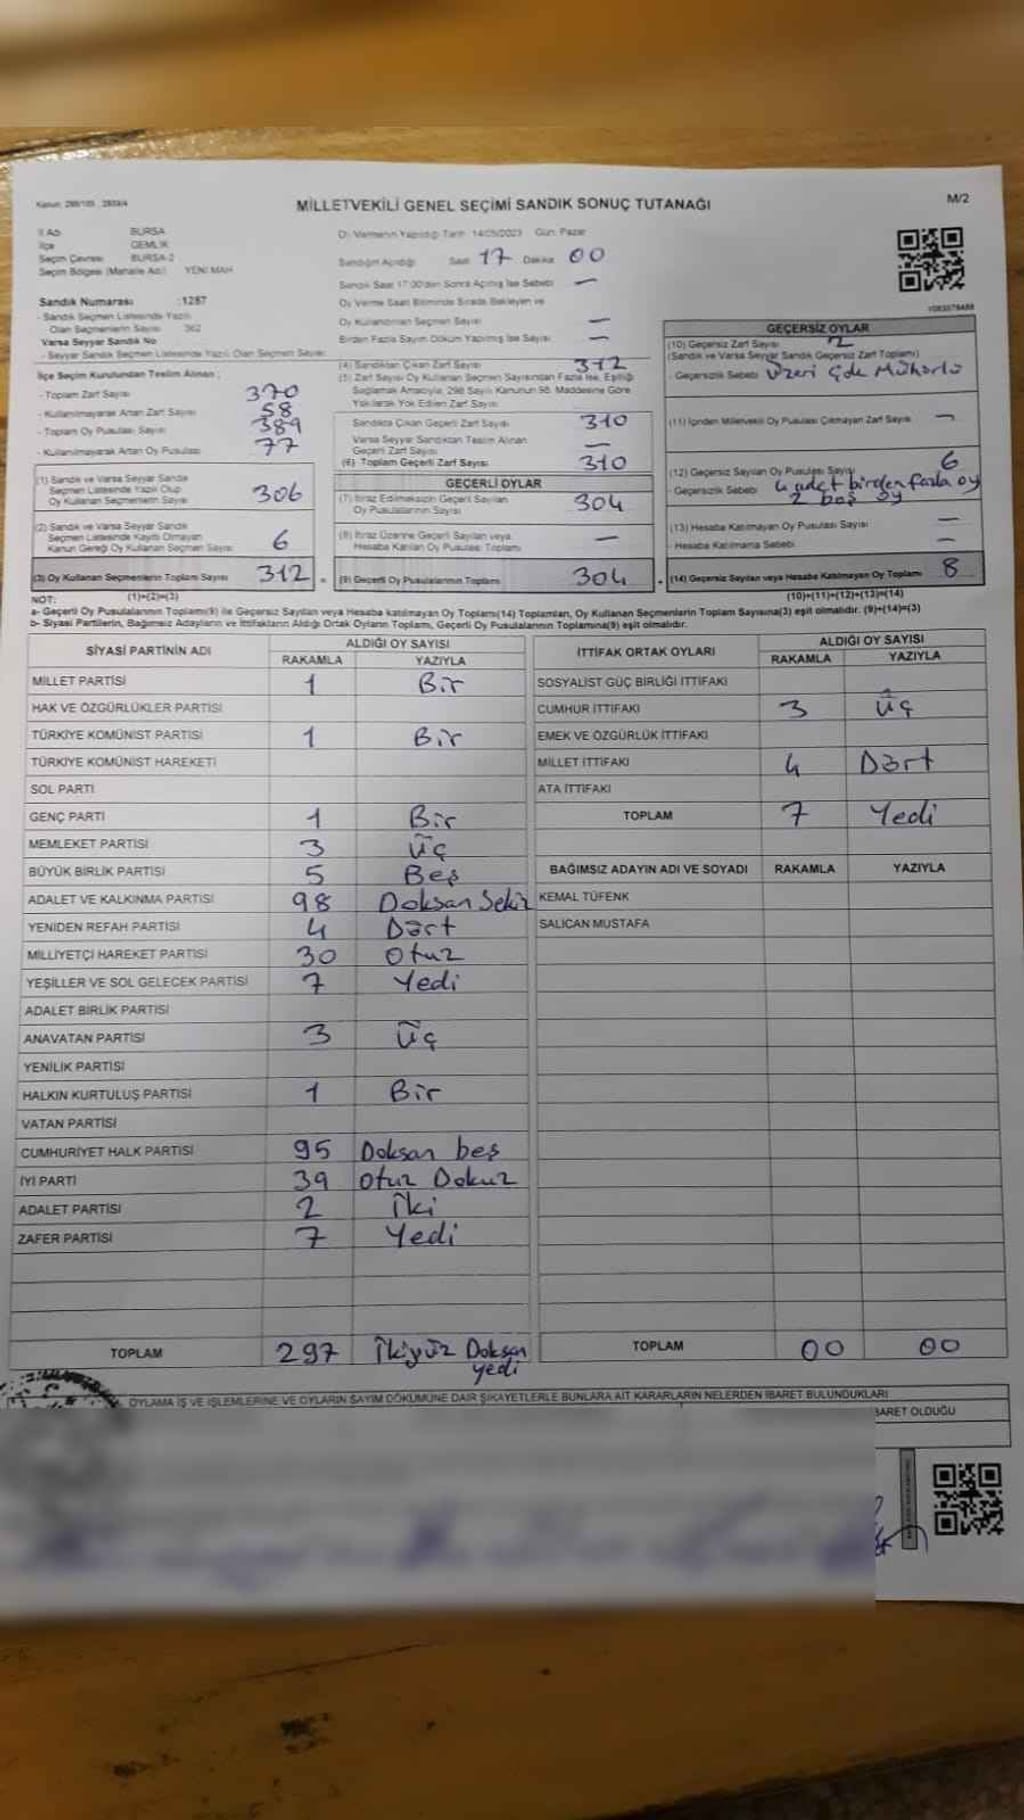 MİLLETVEKİLİ GENEL SEÇİMİ SANDIK SONUÇ TUTANAĞI
M/2
İl Adı BURSA
İlçe GEMLİK
Seçim Çevresi BURSA-2
Seçim Bölgesi (Mahalle Adı) YENİ MAH
Sandık Numarası :1287
- Sandık Seçmen Listesinde Yazılı
Olan Seçmenlerin Sayısı 362
Varsa Seyyar Sandık No
- Seyyar Sandık Seçmen Listesinde Yazılı Olan Seçmen Sayısı
İlçe Seçim Kurulundan Teslim Alınan ;
- Toplam Zarf Sayısı 370
- Kullanılmayarak Artan Zarf Sayısı 58
- Toplam Oy Pusulası Sayısı 389
- Kullanılmayarak Artan Oy Pusulası 77
(1) Sandık ve Varsa Seyyar Sandık
Seçmen Listesinde Yazılı Olup
Oy Kullanan Seçmenlerin Sayısı 306
(2) Sandık ve Varsa Seyyar Sandık
Seçmen Listesinde Kaydı Olmayan
Kanun Gereği Oy Kullanan Seçmen Sayısı 6
(3) Oy Kullanan Seçmenlerin Toplam Sayısı 312 =
(1)+(2)=(3)
Oy Vermenin Yapıldığı Tarih 14/05/2023 Gün: Pazar
Sandığın Açıldığı Saat 17 Dakika 00
Sandık Saat 17.00'den Sonra Açılmış İse Sebebi —
Oy Verme Saati Bitiminde Sırada Bekleyen ve
Oy Kullandırılan Seçmen Sayısı —
Birden Fazla Sayım Döküm Yapılmış İse Sayısı —
(4) Sandıktan Çıkan Zarf Sayısı 312
(5) Zarf Sayısı Oy Kullanan Seçmen Sayısından Fazla İse, Eşitliği
Sağlamak Amacıyla, 298 Sayılı Kanunun 98. Maddesine Göre
Yakılarak Yok Edilen Zarf Sayısı
Sandıkta Çıkan Geçerli Zarf Sayısı 310
Varsa Seyyar Sandıktan Teslim Alınan
Geçerli Zarf Sayısı —
(6) Toplam Geçerli Zarf Sayısı 310
GEÇERLİ OYLAR
(7) İtiraz Edilmeksizin Geçerli Sayılan
Oy Pusulalarının Sayısı 304
(8) İtiraz Üzerine Geçerli Sayılan veya
Hesaba Katılan Oy Pusulası Toplamı —
(9) Geçerli Oy Pusulalarının Toplamı 304 +
GEÇERSİZ OYLAR
(10) Geçersiz Zarf Sayısı 2
(Sandık ve Varsa Seyyar Sandık Geçersiz Zarf Toplamı)
- Geçersizlik Sebebi Üzeri çok Mühürlü
(11) İçinden Milletvekili Oy Pusulası Çıkmayan Zarf Sayısı —
(12) Geçersiz Sayılan Oy Pusulası Sayısı 6
- Geçersizlik Sebebi 4 adet birden fazla oy
2 boş oy
(13) Hesaba Katılmayan Oy Pusulası Sayısı —
- Hesaba Katılmama Sebebi —
(14) Geçersiz Sayılan veya Hesaba Katılmayan Oy Toplamı 8
(10)+(11)+(12)+(13)=(14)
NOT:
a- Geçerli Oy Pusulalarının Toplamı(9) ile Geçersiz Sayılan veya Hesaba katılmayan Oy Toplamı(14) Toplamları, Oy Kullanan Seçmenlerin Toplam Sayısına(3) eşit olmalıdır. (9)+(14)=(3)
b- Siyasi Partilerin, Bağımsız Adayların ve İttifakların Aldığı Ortak Oyların Toplamı, Geçerli Oy Pusulalarının Toplamına(9) eşit olmalıdır.
SİYASİ PARTİNİN ADI ALDIĞI OY SAYISI
RAKAMLA YAZIYLA
MİLLET PARTİSİ 1 Bir
HAK VE ÖZGÜRLÜKLER PARTİSİ
TÜRKİYE KOMÜNİST PARTİSİ 1 Bir
TÜRKİYE KOMÜNİST HAREKETİ
SOL PARTİ
GENÇ PARTİ 1 Bir
MEMLEKET PARTİSİ 3 üç
BÜYÜK BİRLİK PARTİSİ 5 Beş
ADALET VE KALKINMA PARTİSİ 98 Doksan Sekiz
YENİDEN REFAH PARTİSİ 4 Dört
MİLLİYETÇİ HAREKET PARTİSİ 30 Otuz
YEŞİLLER VE SOL GELECEK PARTİSİ 7 Yedi
ADALET BİRLİK PARTİSİ
ANAVATAN PARTİSİ 3 üç
YENİLİK PARTİSİ
HALKIN KURTULUŞ PARTİSİ 1 Bir
VATAN PARTİSİ
CUMHURİYET HALK PARTİSİ 95 Doksan beş
İYİ PARTİ 39 Otuz Dokuz
ADALET PARTİSİ 2 İki
ZAFER PARTİSİ 7 Yedi
TOPLAM 297 İkiyüz Doksan
yedi
İTTİFAK ORTAK OYLARI ALDIĞI OY SAYISI
RAKAMLA YAZIYLA
SOSYALİST GÜÇ BİRLİĞİ İTTİFAKI
CUMHUR İTTİFAKI 3 üç
EMEK VE ÖZGÜRLÜK İTTİFAKI
MİLLET İTTİFAKI 4 Dört
ATA İTTİFAKI
TOPLAM 7 Yedi
BAĞIMSIZ ADAYIN ADI VE SOYADI RAKAMLA YAZIYLA
KEMAL TÜFENK
SALİCAN MUSTAFA
TOPLAM 00 00
OYLAMA İŞ VE İŞLEMLERİNE VE OYLARIN SAYIM DÖKÜMÜNE DAİR ŞİKAYETLERLE BUNLARA AİT KARARLARIN NELERDEN İBARET BULUNDUKLARI
BARET OLDUĞU